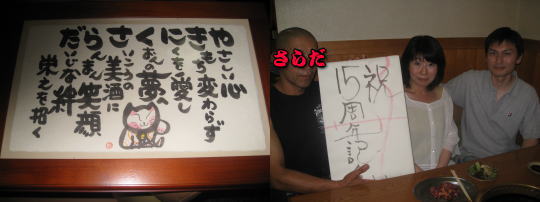 やさしい心
きもち変わらず
にくをも愛し
くおんの夢へ
さいこうの美酒に
らんまん笑顔
だいじな絆
栄えを招く
さらだ
祝
15周年記